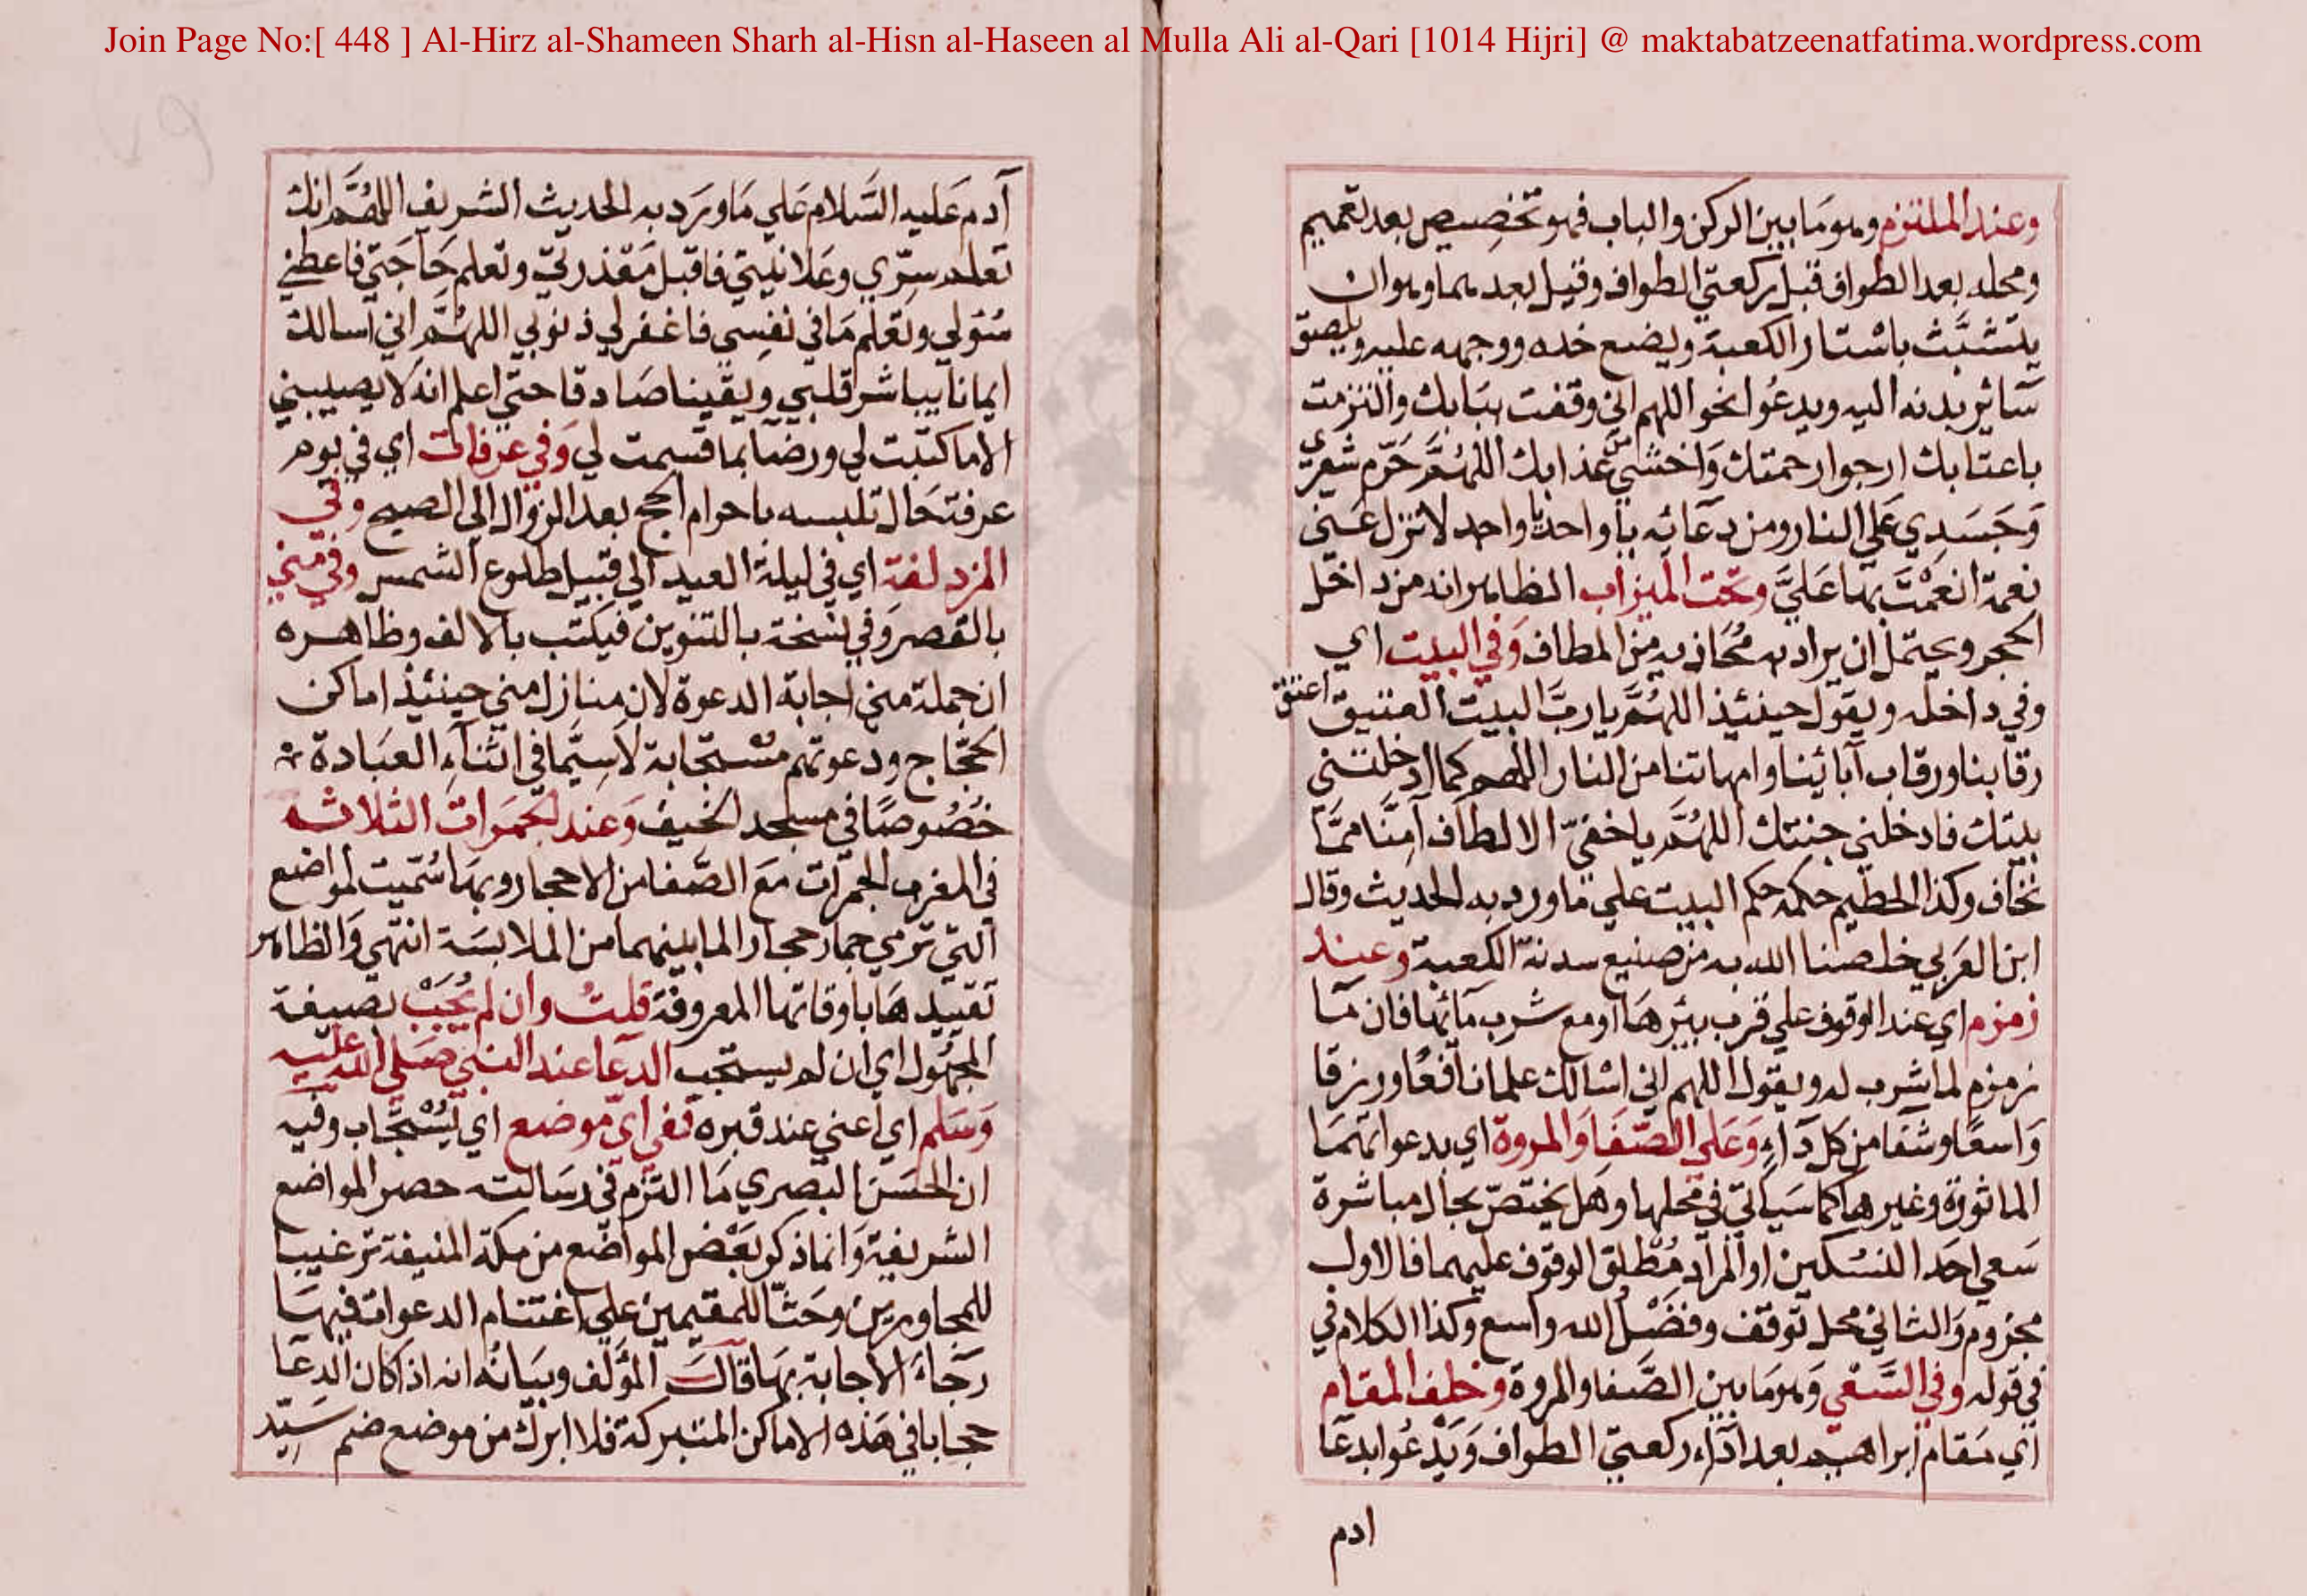 Join Page No:[ 448 ] Al-Hirz al-Shameen Sharh al-Hisn al-Haseen al Mulla Ali al-Qari [1014 Hijri] @ maktabatzeenatfatima.wordpress.com
وعند الملتزم وهو مَا بين الركن والباب فهو تخصِيص بعد تعميم
ومحله بعد الطواف قبل ركعتي الطواف وقيل بعدهما وهو ان
يتشبَّث باستار الكعبة ويضع خده ووجهه عليه ويلصق
سَائر بدنه اليه ويدعُو بنحو اللهم اني وقفت ببَابك والتزمت
باعتابك ارجوا رحمتك وَاخشي من عذابك اللهُمَّ حَرّم شعري
وَجَسَدِي عَلي النار ومن دعَائه يا واحد يا واحد لا تنزل عَني
نعمة انعمْتَ بهَا عَليَّ وتحت الميزاب الظاهر انه من داخل
الحجر ويحتمل ان يراد به مُحَاذيه من المطاف وَفي البيت اي
وفي داخله ويقول حينئذ اللهُمَّ يا ربَّ البيت العتيق اعتق
رقابنا ورقاب آبائينا وامهاتنا من النار اللهم كما ادخلتني
بيتك فادخلني جنتك اللهُمَّ يا خفيّ الالطاف آمِنَّا ممَّا
نخاف وكذا الحطيم حكمه حكم البيت علي مَا ورد به الحديث وقال
ابن العَربي خلصنا الله به من صنيع سدنة الكعبة وعند
زمزم اي عند الوقوف علي قرب بيئرهَا او مع شرب مَائها فان مَا
زمزم لما شرب له ويقول اللهم اني اسَالك علما نافعًا ورزقا
وَاسعًا وشفا من كل دَاءٍ وَعَلي الصَّفَا وَالمروة اي يدعوا بهمَا
الماثورة وغيرها كما سَياتي في محلها وهَل يختصّ بحال مباشرة
سَعي احَد النسُكين او المرَاد مُطلق الوقوف عليهما فالاول
مجزوم وَالثاني محل توقف وفضْلُ الله واسع وكذا الكلام في
في قوله وفي السَّعْي وَهو مَا بين الصَّفا والمروة وخلف المقام
اي مَقام ابراهيم بعد ادَاء ركعتي الطواف وَيَدْعُوا بدعَا
ادم
آدم عَليه السَّلام عَلي مَا ورَد به الحديث الشريف اللهُمَّ انك
تعلم سِرّي وعَلانيتي فاقبل مَعْذرتي وتعلم حَاجَتي فاعطني
سُئولي وتعْلم مَا في نفسِي فاغفر لي ذنوبي اللهُمَّ اني اسالك
ايمانا يباشر قلبي ويقينا صَادقا حتي اعلم انه لا يصيبني
الا ما كتبت لي ورضا بما قسمت لي وَفي عرفات اي في يوم
عرفة حَال تلبسه باحرام الحج بعد الزوال الي الصبح وفي
المزدلفة اي في ليلة العيد الي قبيل طلوع الشمس وفي مني
بالقصر وَفي نسخة بالتنوين فيكتب بالالف وظاهره
ان جملة مني اجابة الدعوة لان منازل مني حينئذ اماكن
الحجّاج ودعوتهم مسْتجَابة لاسِيَّما في اثنآء العبَادة
خُصُوصًا في مسجد الخيف وَعند الجمَرات الثلاثه
في المغرب الجمرَات مَعَ الصَّفا من الاحجار وبهَا سُمّيت لمواضع
التي ترمي جمار حجار الما بينهما من الملابسَة انتهي وَالظاهر
تقييدهَا باوقاتها المعروفة قلتُ وان لم يُجَبْ بصيغة
المجهُول اي ان لم يستجب الدعَا عند النبي صَلي الله عليه
وَسَلم اي اعني عند قبره ففي ايّ موضع اي يُسْتجَاب وفيه
ان الحسَن البصري مَا التزم في رسَالته حصر المواضع
الشريفة وَانما ذكر بعْض المواضع من مكة المنيفة ترغيبا
للمجاورين وحَثّا للمقيمين علي اغتنام الدعوات فيهَا
رَجَاءَ الاجابة بهَا قالَ المؤلف وبيَانُه انه اذا كان الدعَا
حجابا في هَذه الاماكن المتبركة فلا ابرك من موضع ضم سَيّد